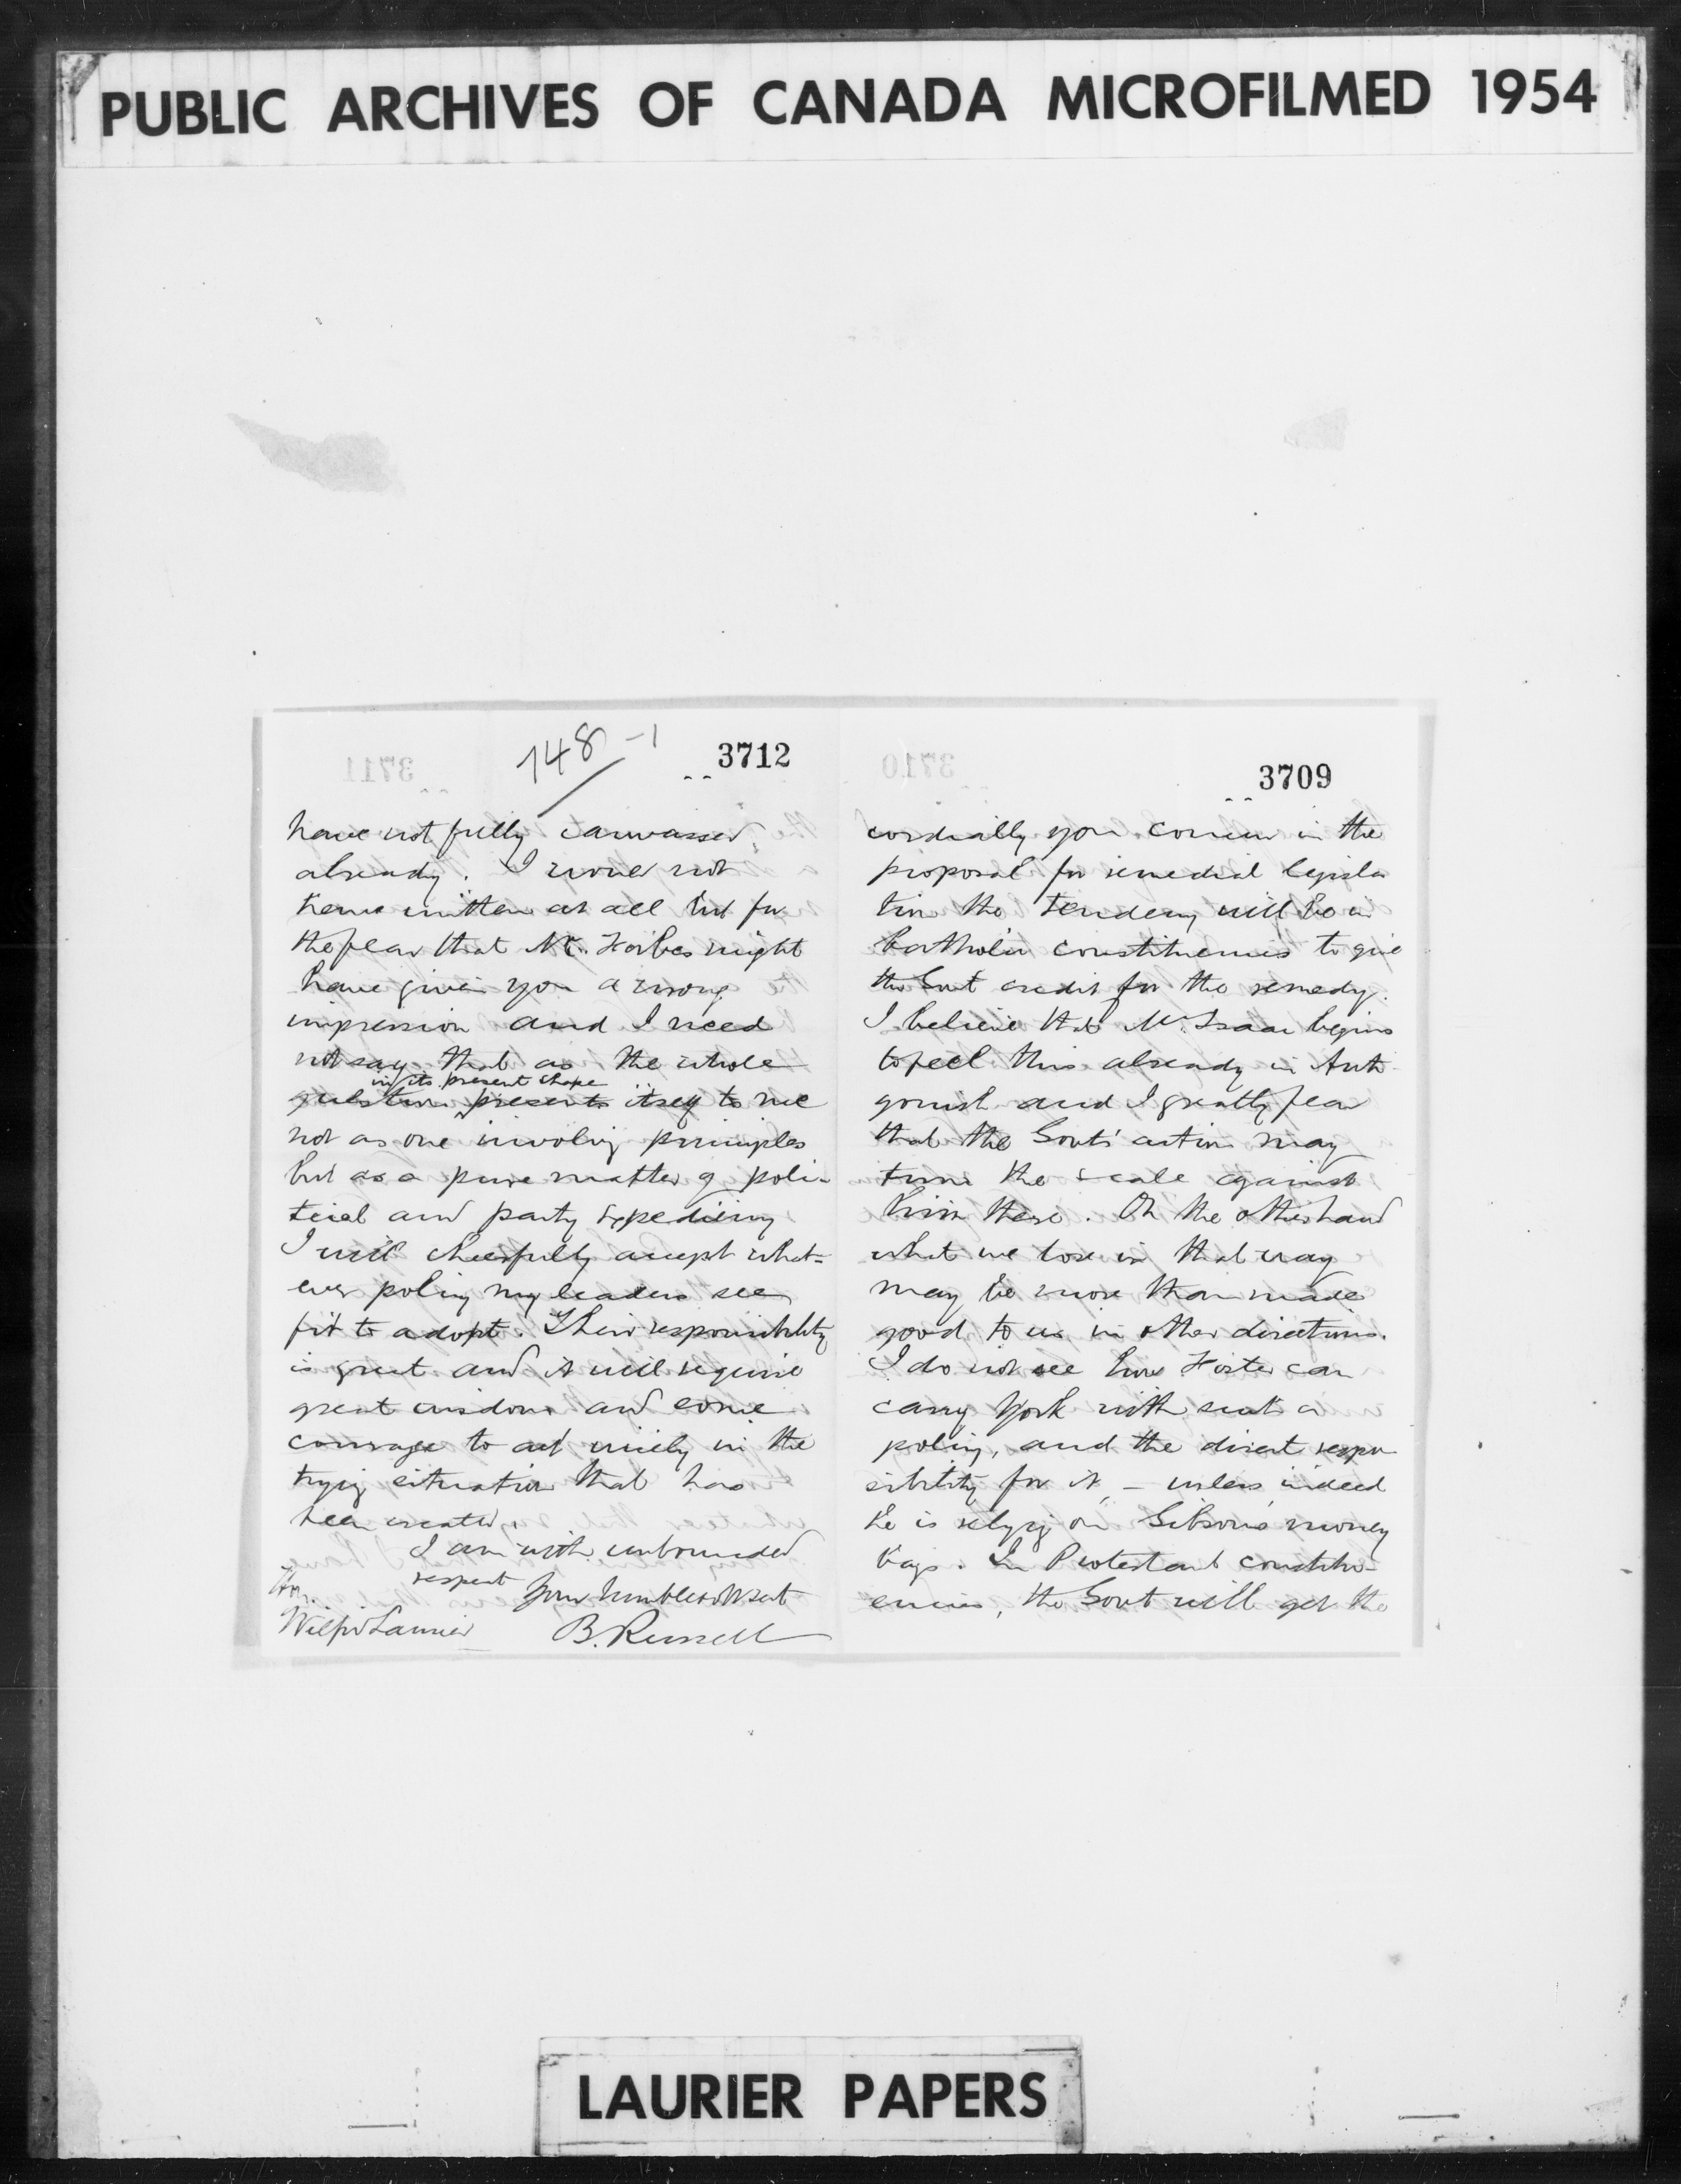 PUBLIC ARCHIVES OF CANADA MICROFILMED 1954
748-1
3712
have not fully canvassed
already. I would not
have written at all but for
the fear that Mr. Forbes might
have given you a wrong
impression and I need
not say that as the whole
in its present shape
question presents itself to me
not as one involvg principles
but as a pure matter of poli-
tical and party expediency
I will cheerfully accept what-
ever policy my leaders see
fit to adopt. Their responsibility
is great and it will require
great wisdom and some
courage to act wisely in the
tryig situation that has
been created.
I am with unbounded
respect Your humble servt
Hon.
Wilfrid Laurier B. Russell
3709
cordially you concur in the
proposal for remedial legisla
tion the tendency will be in
Catholic constituencies to give
the Govt credit for the remedy.
I believe that McIsaac begins
to feel this already in Anti
gonish and I greatly fear
that the Govts' action may
turn the scale against
him there. On the other hand
what we lose in that way
may be more than made
good to us in other directions.
I do not see how Foster can
carry York with such a
policy, and the direct respon
sibility for it, - unless indeed
he is relyig on Gibson's money
bags. In Protestant constitu-
encies, the Govt will get the
LAURIER PAPERS